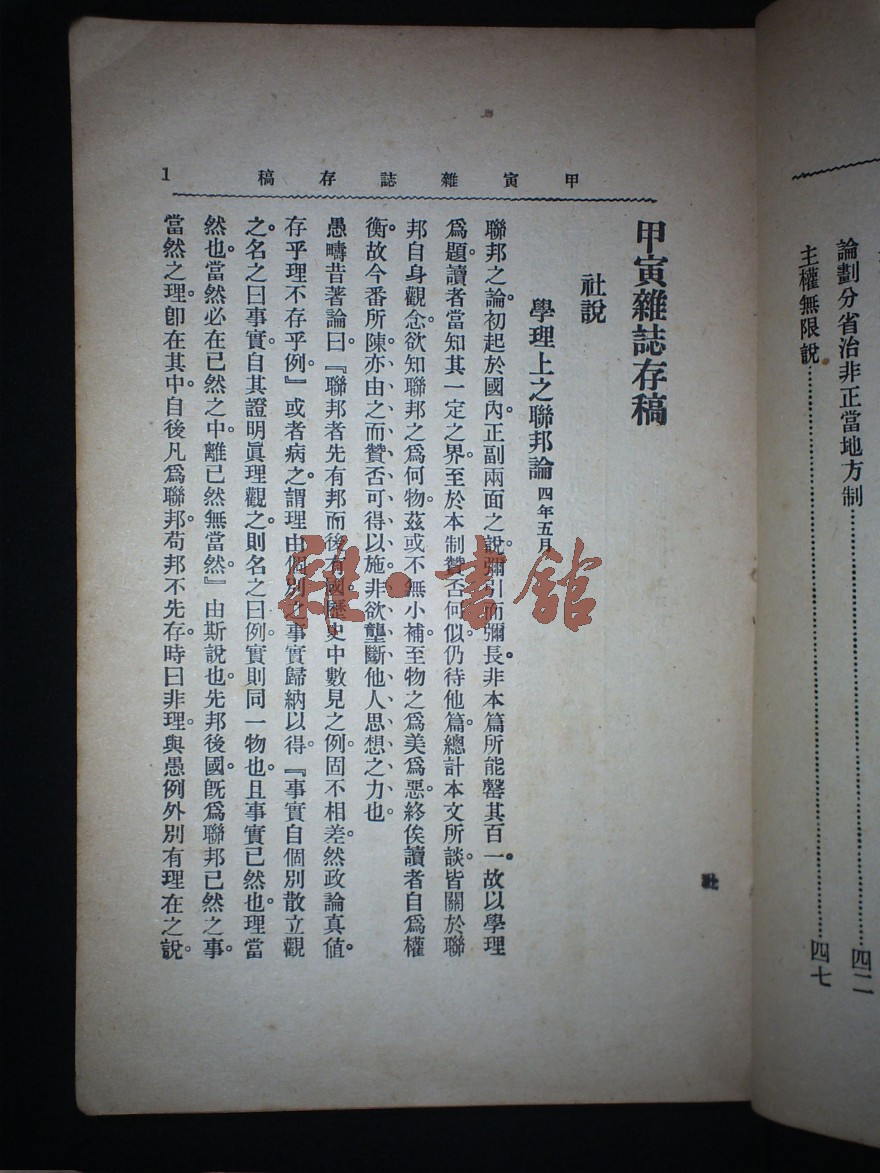 論劃分省治非正當地方制……四二
主權無限說……四七
甲寅雜誌存稿
1
甲寅雜誌存稿
社說
學理上之聯邦論 四年五月
聯邦之論。初起於國內。正副兩面之說。彌引而彌長。非本篇所能罄其百一。故以學理
爲題。讀者當知其一定之界。至於本制贊否何似。仍待他篇總計本文所談。皆關於聯
邦自身觀念。欲知聯邦之爲何物。茲或不無小補。至物之爲美爲惡。終俟讀者自爲權
衡。故今番所陳、亦由之而贊否可得以施、非欲壟斷他人思想之力也。
愚疇昔著論曰。『聯邦者先有邦而後有國。歷史中數見之例。固不相差。然政論真値。
存乎理不存乎例。』或者病之。謂理由個別之事實歸納以得。『事實自個別散立觀
之。名之曰事實。自其證明眞理觀之。則名之曰例。實則同一物也。且事實已然也。理當
然也。當然必在已然之中。離已然無當然。』由斯說也。先邦後國。旣爲聯邦已然之事。
當然之理。卽在其中。自後凡爲聯邦。苟邦不先存。時曰非理。與愚例外別有理在之說。
雜·書館